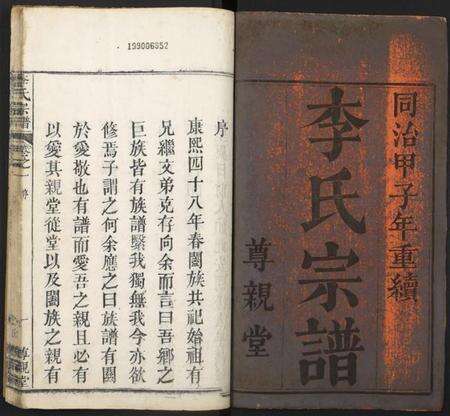 同治甲子年重續
李氏宗譜
尊親堂
199006952
序
康熙四十八年春闔族共祀始祖有
兄繼文弟克存向余而言曰吾鄉之
巨族皆有族譜繫我獨無我今亦欲
修焉子謂之何余應之曰族譜有關
於愛敬也有譜而愛吾之親且必有
以愛其親堂從堂以及闔族之親有
李氏宗譜
序
一
尊親堂